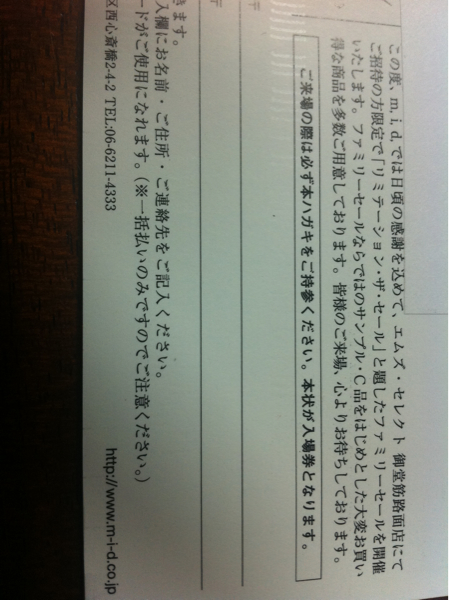 この度、m.i.d.では日頃の感謝を込めて、エムズ・セレクト 御堂筋路面店にて
ご招待の方限定で「リミテーション・ザ・セール」と題したファミリーセールを開催
いたします。ファミリーセールならではのサンプル・C品をはじめとした大変お買い
得な商品を多数ご用意しております。皆様のご来場、心よりお待ちしております。
ご来場の際は必ず本ハガキをご持参ください。本状が入場券となります。
〒
〒
きます。
入欄にお名前・ご住所・ご連絡先をご記入ください。
ードがご使用になれます。(※一括払いのみですのでご注意ください。)
区西心斎橋2-4-2 TEL:06-6211-4333
http://www.m-i-d.co.jp